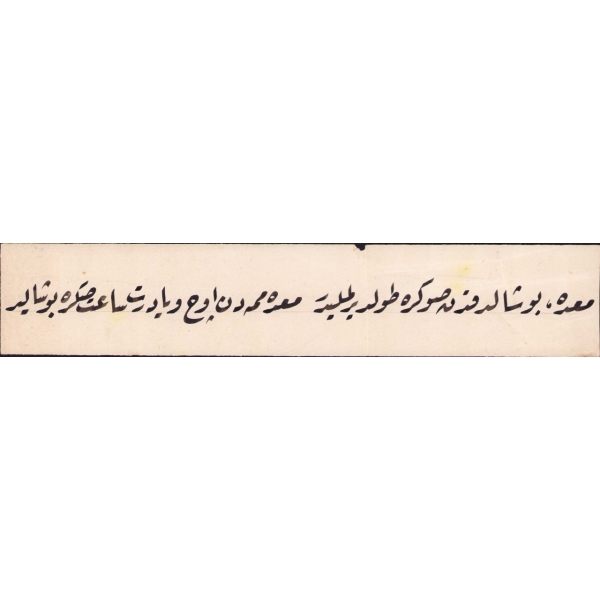 معده، بوشالدقدن صوكره طولديرلمليدر معده دن اوچ ويا درت ساعت صكره بوشالير